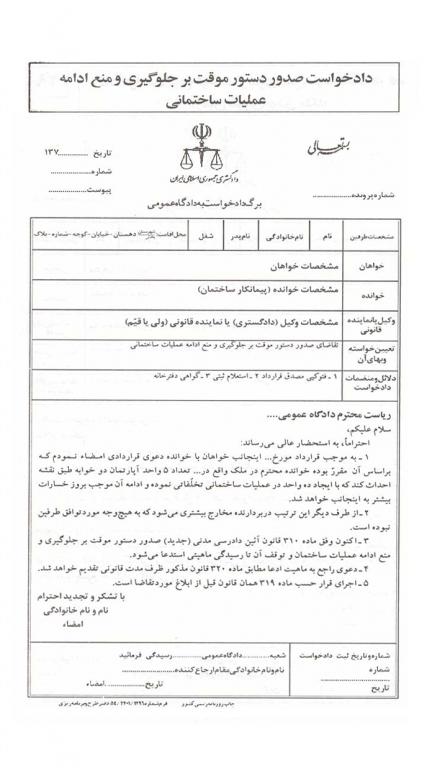 دادخواست صدور دستور موقت بر جلوگیری و منع ادامه
عملیات ساختمانی
بسمه‌تعالی
تاریخ ................ ۱۳۷
شماره......................
پیوست.....................
دادگستری جمهوری اسلامی ایران
شماره پرونده......................
برگ دادخواست به دادگاه عمومی
مشخصات طرفین نام نام خانوادگی نام پدر شغل محل اقامت: دهستان - خیابان - کوچه - شماره - پلاک
خواهان مشخصات خواهان
خوانده مشخصات خوانده (پیمانکار ساختمان)
وکیل یا نماینده قانونی مشخصات وکیل (دادگستری) یا نماینده قانونی (ولی یا قیّم)
تعیین خواسته وبهای آن تقاضای صدور دستور موقت بر جلوگیری و منع ادامه عملیات ساختمانی
دلائل و منضمات دادخواست ۱ - فتوکپی مصدق قرارداد ۲ - استعلام ثبتی ۳ - گواهی دفترخانه
ریاست محترم دادگاه عمومی....
سلام علیکم،
احتراماً، به استحضار عالی می‌رساند:
۱ - به موجب قرارداد مورخ... اینجانب خواهان با خوانده دعوی قراردادی امضاء نمودم که
براساس آن مقرر بوده خوانده محترم در ملک واقع در... تعداد ۵ واحد آپارتمان دو خوابه طبق نقشه
احداث کند که با ایجاد ده واحد در عملیات ساختمانی تخلّفاتی نموده و ادامه آن موجب بروز خسارات
بیشتر به اینجانب خواهد شد.
۲ - از طرف دیگر این ترتیب دربردارنده مخارج بیشتری می‌شود که به هیچ‌وجه مورد توافق طرفین
نبوده است.
۳ - اکنون وفق ماده ۳۱۰ قانون آئین دادرسی مدنی (جدید) صدور دستور موقت بر جلوگیری و
منع ادامه عملیات ساختمان و توقف آن تا رسیدگی ماهیتی استدعا می‌شود.
۴ - دعوی راجع به ماهیت ادعا مطابق ماده ۳۲۰ قانون مذکور ظرف مدت قانونی تقدیم خواهد شد.
۵ - اجرای قرار حسب ماده ۳۱۹ همان قانون قبل از ابلاغ مورد تقاضا است.
با تشکر و تجدید احترام
نام و نام خانوادگی
امضاء
شماره و تاریخ ثبت دادخواست
شماره
......................
تاریخ
شعبه.............دادگاه عمومی.............رسیدگی فرمائید
نام و نام خانوادگی مقام ارجاع کننده......................
تاریخ...............امضاء
چاپ روزنامه رسمی کشور